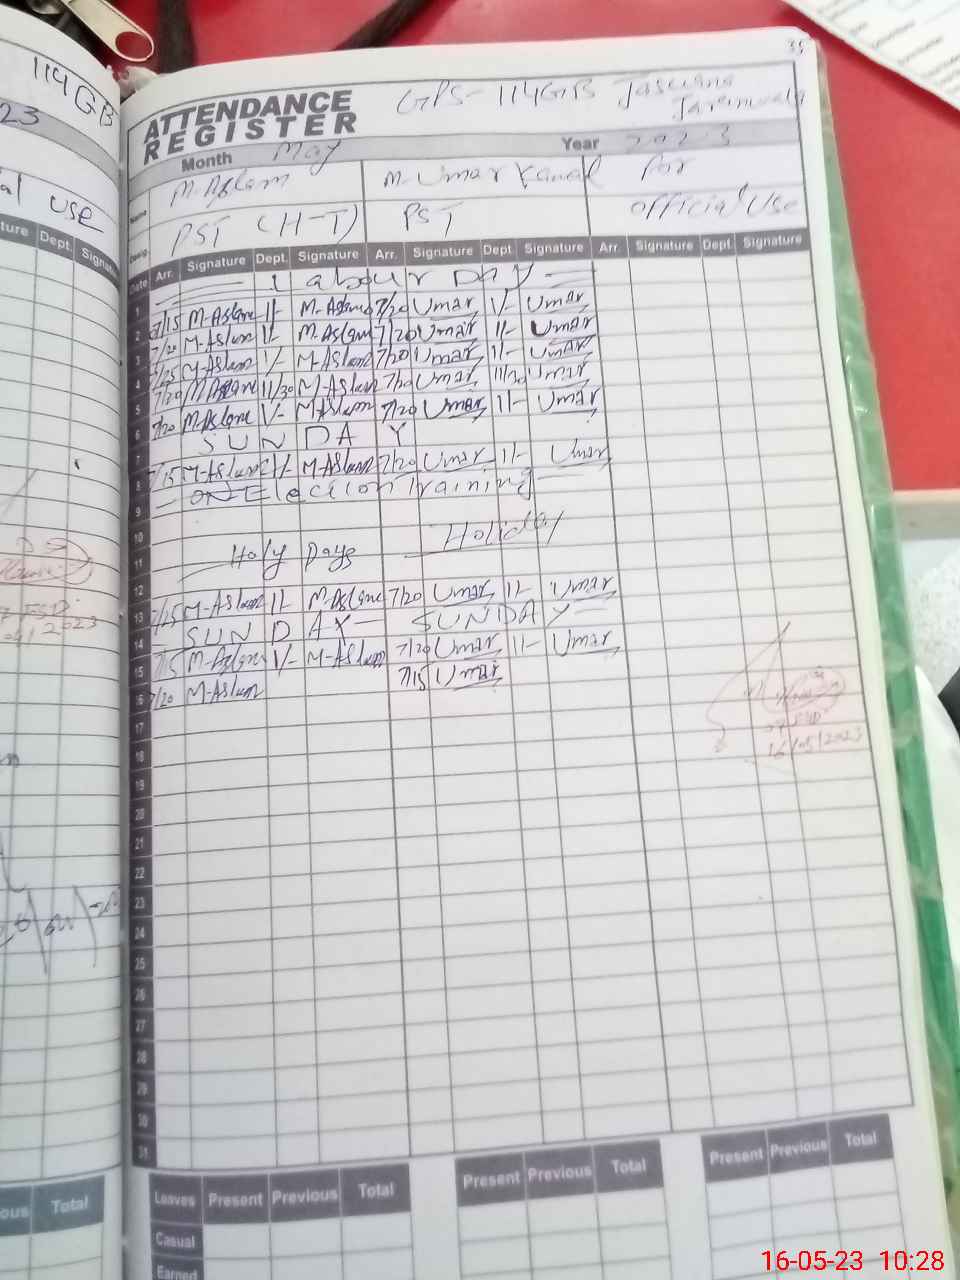 35
114GB
ATTENDANCE
REGISTER
GPS- 114GB
Jaranwala
23
Month May Year 2023
Name M-Aslam M-Umar For
use
Desig PST (H-T) PST official Use
Date Arr. Signature Dept. Signature Arr. Signature Dept. Signature Arr. Signature Dept. Signature
ture Dept. Signatu
1 Labour DAY
2 7/15 M-Aslam 11/- M-Aslam 7/20 Umar 11/- Umar
3 7/20 M-Aslam 11/- M-Aslam 7/20 Umar 11/- Umar
4 7/25 M-Aslam 1/- M-Aslam 7/20 Umar 11/- Umar
5 7/20 M-Aslam 11/30 M-Aslam 7/20 Umar 11/30 Umar
6 7/20 M-Aslam 1/- M-Aslam 7/20 Umar 11/- Umar
7 SUN DA Y
8 7/15 M-Aslam 1/- M-Aslam 7/20 Umar 11/- Umar
9 ON Election Training
10
11 Holy Days Holiday
12
13 7/15 M-Aslam 11/- M-Aslam 7/20 Umar 11/- Umar
14 SUN D AY SUNDAY
15 7/15 M-Aslam 1/- M-Aslam 7/20 Umar 11/- Umar
16 7/20 M-Aslam 7/15 Umar
17
18 16/05/2023
19
20
21
22
23
24
25
26
27
28
29
30
31
Leaves Present Previous Total Present Previous Total Present Previous Total
Casual
Earned
ous Total
16-05-23 10:28